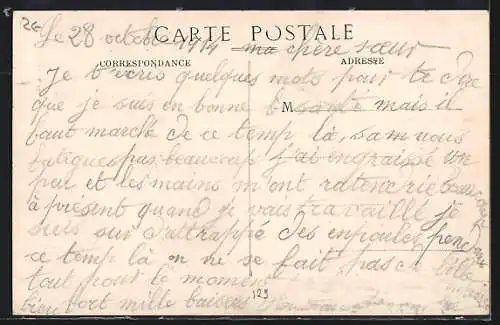 2€
CARTE POSTALE
Le 28 octobre 1914 ma chère sœur
CORRESPONDANCE
ADRESSE
Je t'écris quelques mots pour te dire
que je suis en bonne santé mais il
M
faut marché de ce temp là, sam vous
fatigues pas beaucoup j'ai engraissé un
peu et les mains m'ont
à present quand je vais travaillé je
suis sur d'attrappé des enpoules
ce temp là on ne se fait pas
tout pour le moment
bien fort mille baisers
129